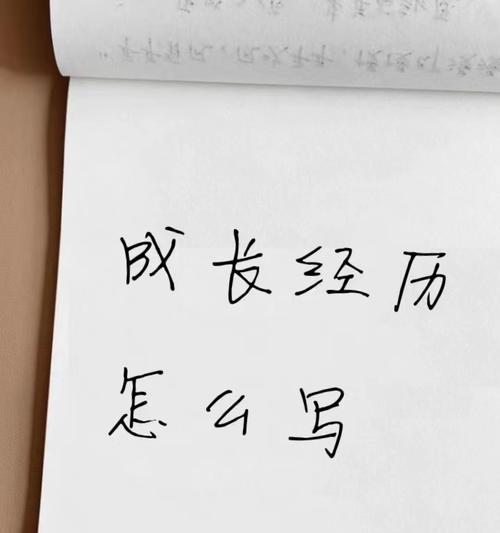 成长经历
怎么写